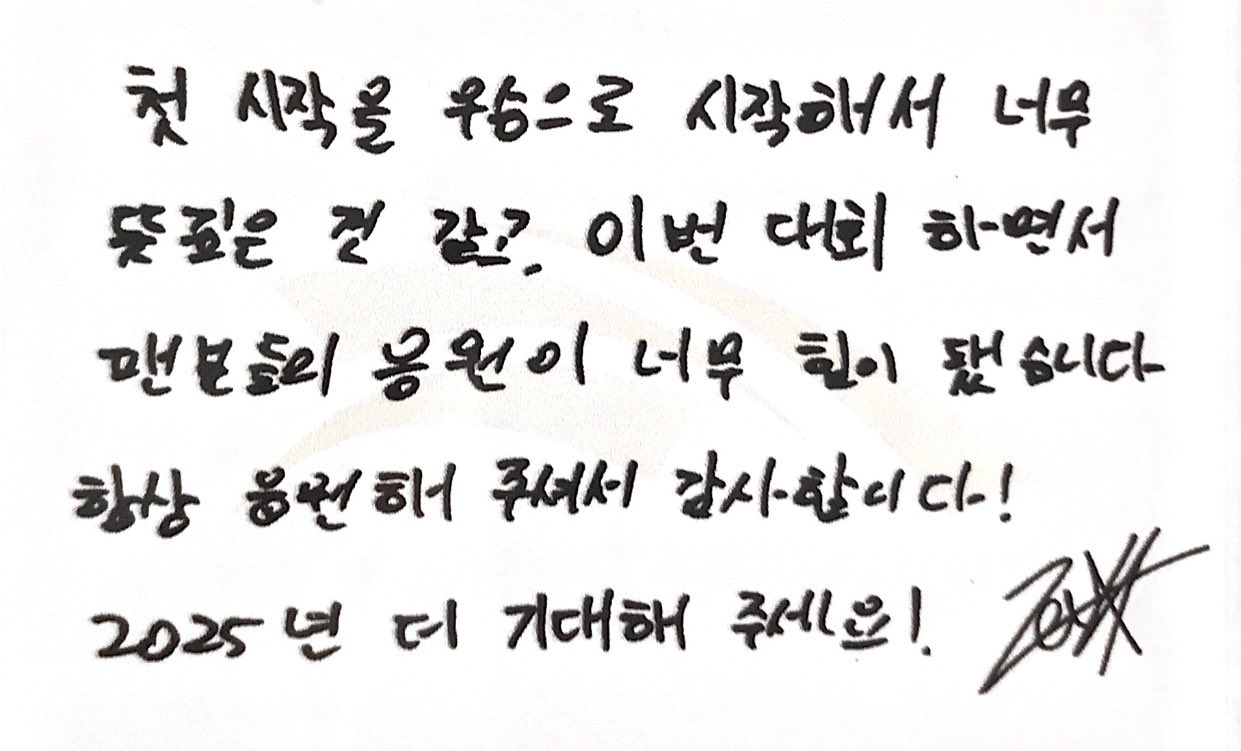 첫 시작을 우승으로 시작해서 너무
뜻깊은 건 같고, 이번 대회 하면서
팬분들의 응원이 너무 힘이 됐습니다
항상 응원해 주셔서 감사합니다!
2025년 더 기대해 주세요!